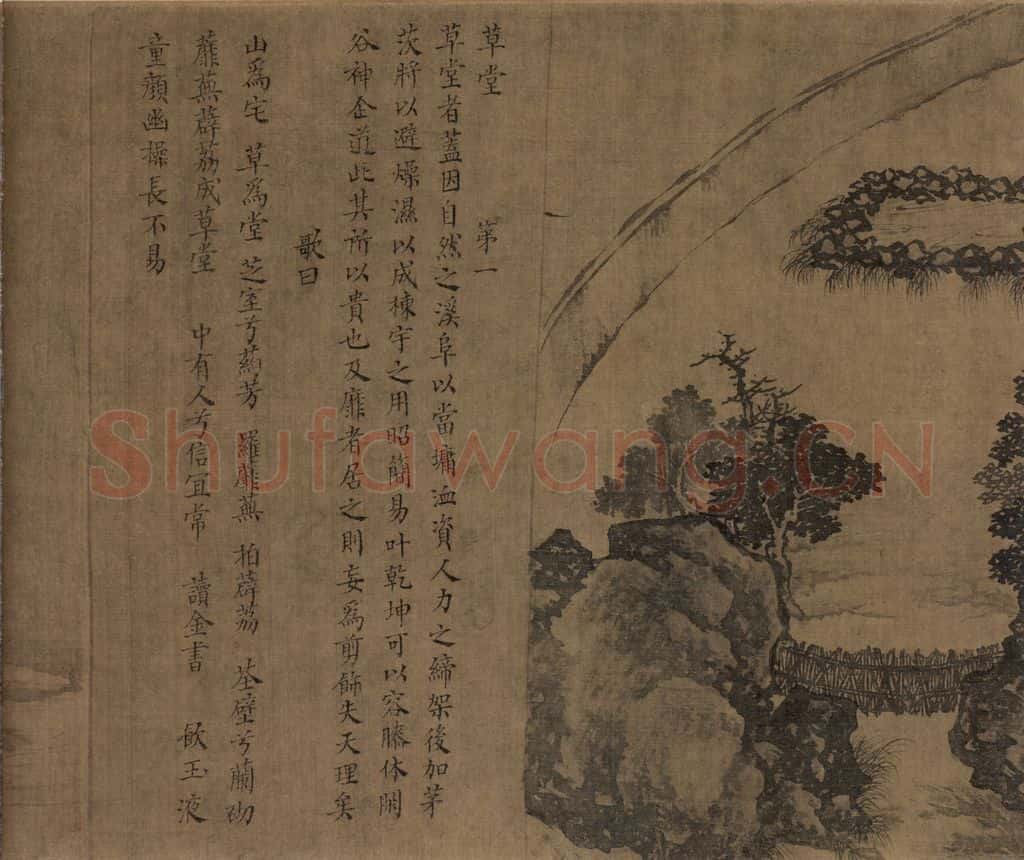 草堂 第一
草堂者蓋因自然之溪阜以當墉洫資人力之締架後加茅
茨將以避燥濕以成棟宇之用昭簡易叶乾坤可以容膝休閑
谷神企道此其所以貴也及靡者居之則妄為剪飾失天理矣
歌曰
山為宅 草為堂 芝室兮葯芳 羅蘼蕪 拍薜荔 荃壁兮蘭砌
蘼蕪薜荔成草堂 中有人兮信宜常 讀金書 飲玉液
童顏幽操長不易
Shufawang.CN